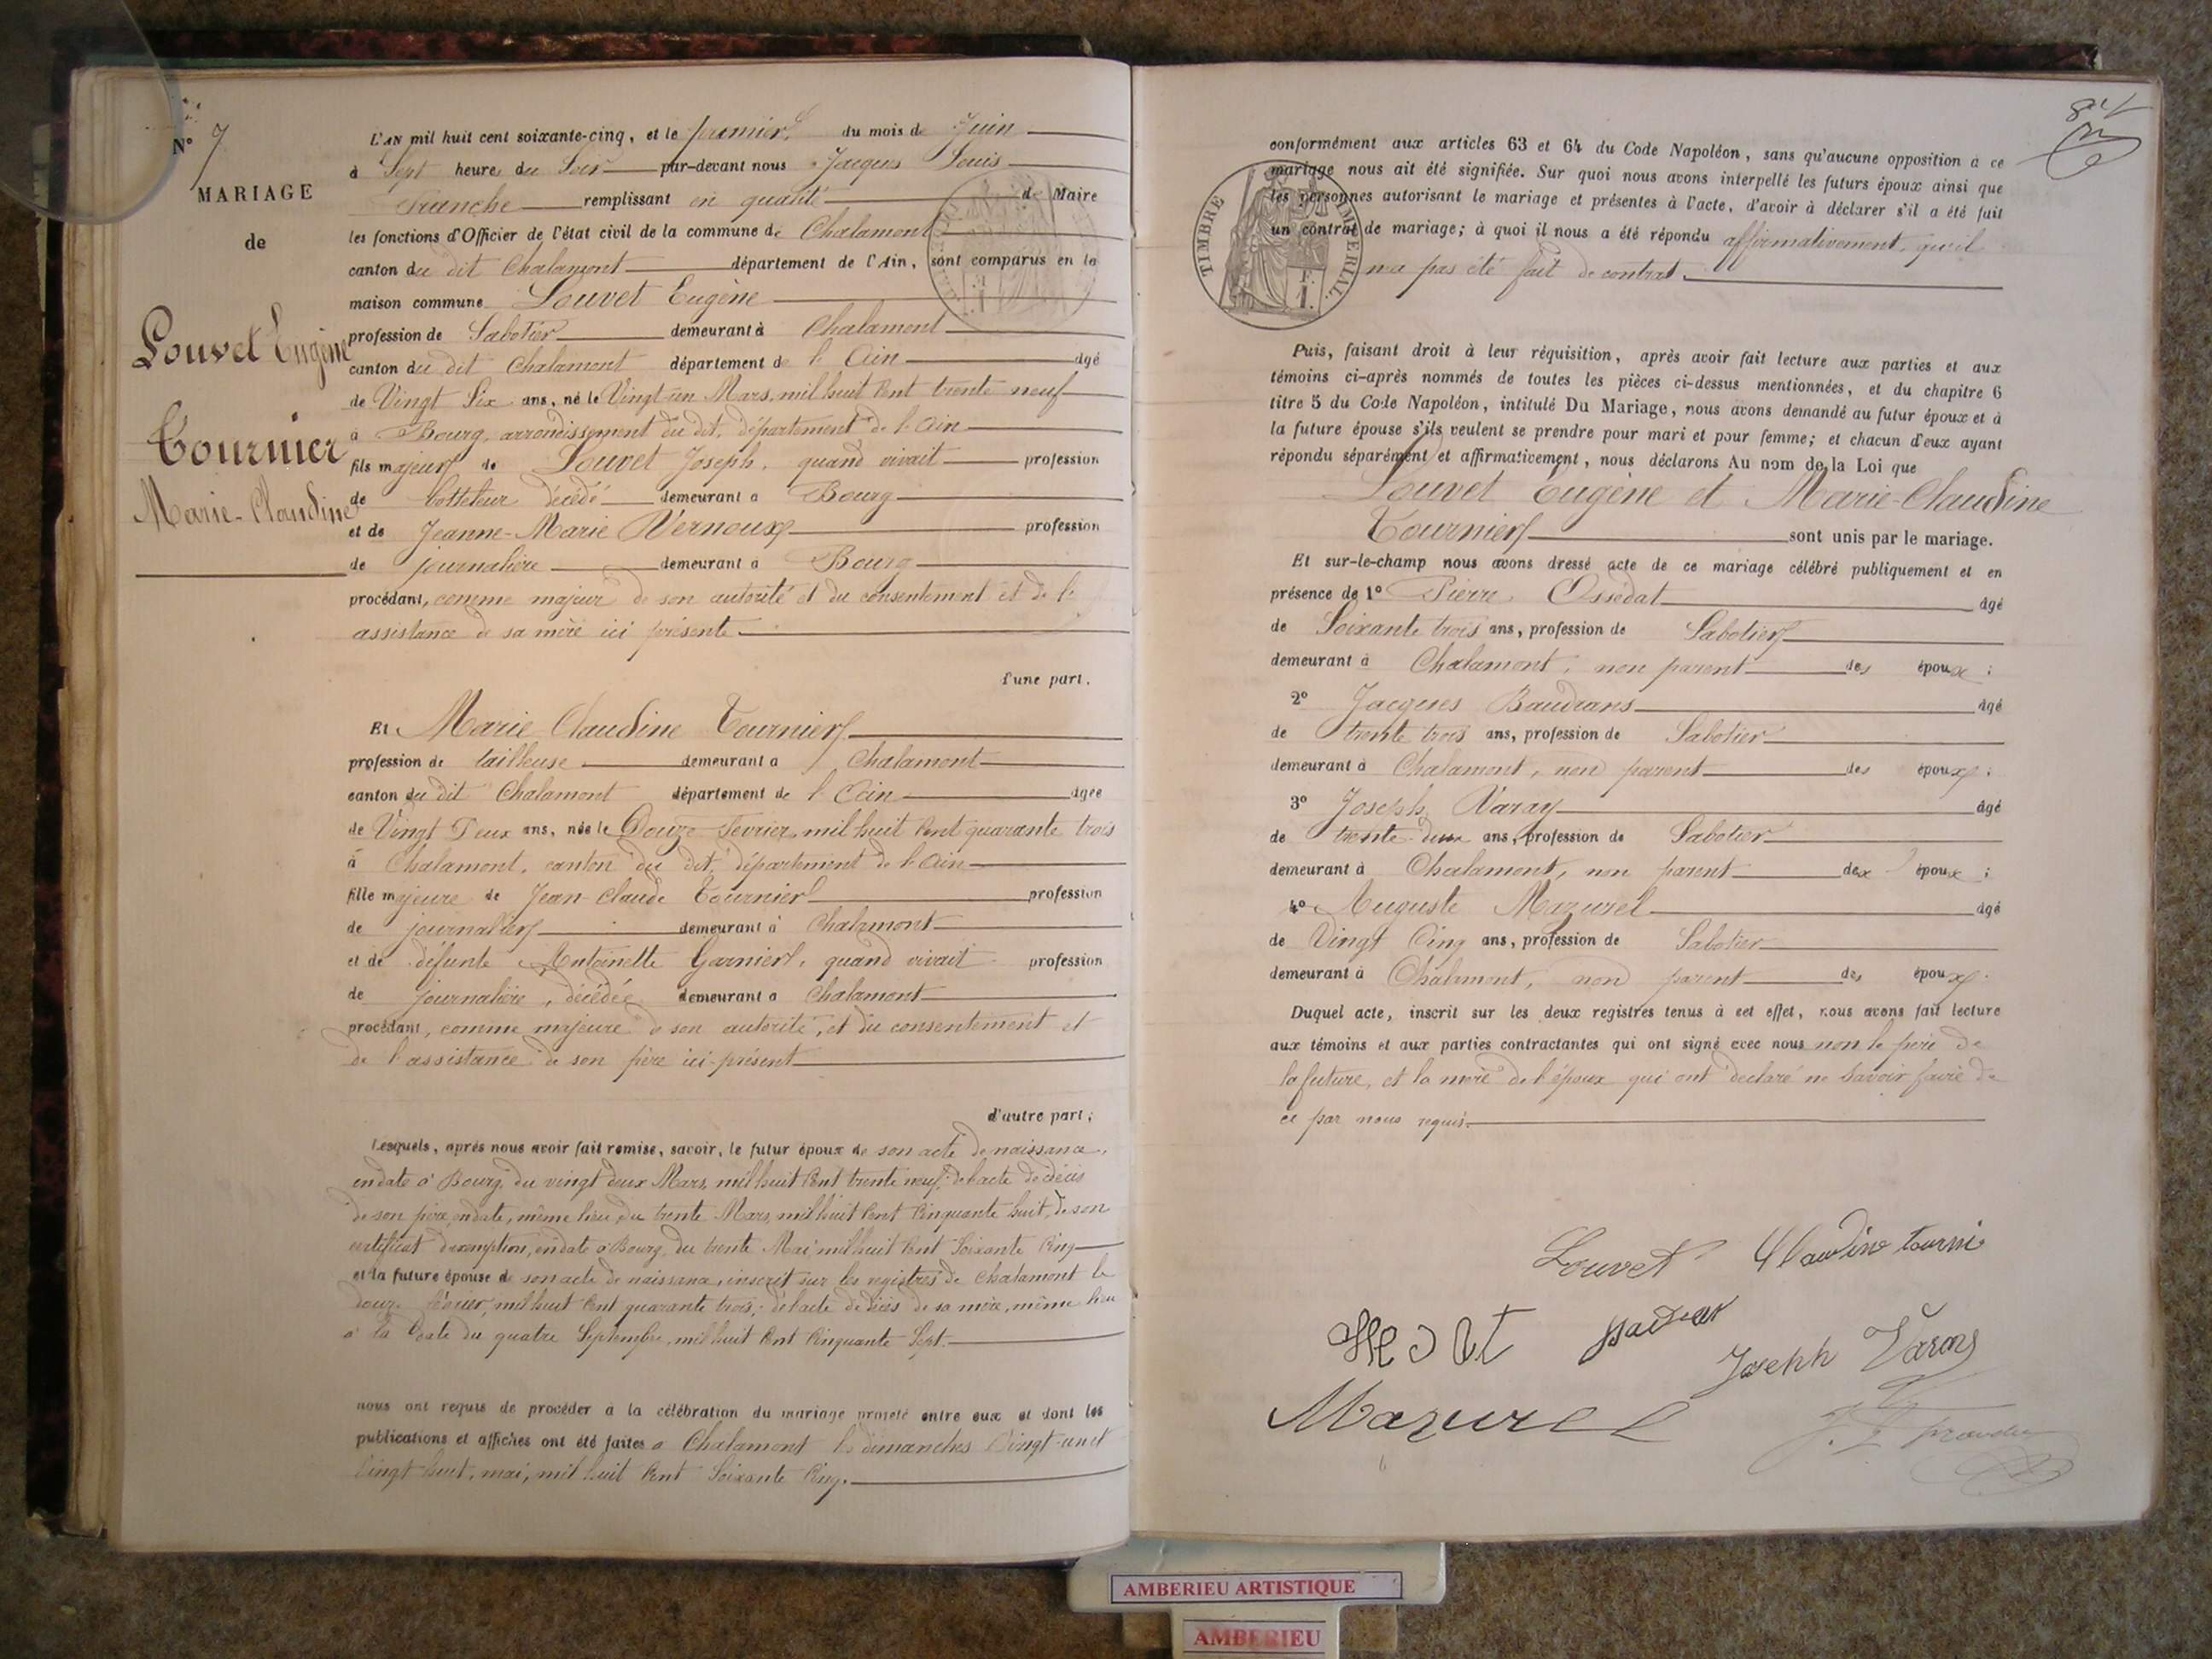 N° 7
MARIAGE
de
Louvet Eugène
Tournier
Marie-Claudine
L'AN mil huit cent soixante-cinq, et le premier du mois de Juin
à Sept heures du Soir par-devant nous Jacques Louis
Franche remplissant en qualité de Maire
les fonctions d'Officier de l'état civil de la commune de Chalamont
canton du dit Chalamont département de l'Ain, sont comparus en la
maison commune Louvet Eugène
profession de Sabotier demeurant à Chalamont
canton du dit Chalamont département de l'Ain âgé
de Vingt Six ans, né le Vingt un Mars, mil huit Cent trente neuf
à Bourg, arrondissement du dit, département de l'Ain
fils majeur de Louvet Joseph, quand vivait profession
de botteleur décédé demeurant à Bourg
et de Jeanne-Marie Vernoux profession
de journalière demeurant à Bourg
procédant, comme majeur de son autorité et du consentement et de l'
assistance de sa mère ici présente
d'une part.
Et Marie Claudine Tournier
profession de tailleuse demeurant à Chalamont
canton du dit Chalamont département de l'Ain âgée
de Vingt Deux ans, née le Douze Fevrier, mil huit Cent quarante trois
à Chalamont, canton du dit, département de l'Ain
fille majeure de Jean-Claude Tournier profession
de journalier demeurant à Chalamont
et de défunte Antoinette Garnier, quand vivait profession
de journalière, décédée demeurant à Chalamont
procédant, comme majeure de son autorité, et du consentement et
de l'assistance de son père ici-présent
d'autre part;
Lesquels, après nous avoir fait remise, savoir, le futur époux de son acte de naissance,
en date à Bourg, du vingt deux Mars, mil huit Cent trente neuf, de l'acte de décès
de son père, en date, même lieu, du trente Mars, mil huit Cent Cinquante huit, de son
certificat d'exemption, en date à Bourg, du trente Mai mil huit Cent Soixante Cinq
et la future épouse de son acte de naissance, inscrit sur les registres de Chalamont le
douze Février, mil huit Cent quarante trois; de l'acte de décès de sa mère, même lieu
à la Date du quatre Septembre, mil huit Cent Cinquante Sept.
nous ont requis de procéder à la célébration du mariage projeté entre eux et dont les
publications et affiches ont été faites à Chalamont les dimanches Vingt-un et
Vingt huit, mai, mil huit Cent Soixante Cinq.
84
conformément aux articles 63 et 64 du Code Napoléon, sans qu'aucune opposition à ce
mariage nous ait été signifiée. Sur quoi nous avons interpellé les futurs époux ainsi que
les personnes autorisant le mariage et présentes à l'acte, d'avoir à déclarer s'il a été fait
un contrat de mariage; à quoi il nous a été répondu affirmativement, qu'il
n'a pas été fait de contrat.
TIMBRE IMPÉRIAL
F.
1.
Puis, faisant droit à leur réquisition, après avoir fait lecture aux parties et aux
témoins ci-après nommés de toutes les pièces ci-dessus mentionnées, et du chapitre 6
titre 5 du Code Napoléon, intitulé Du Mariage, nous avons demandé au futur époux et à
la future épouse s'ils veulent se prendre pour mari et pour femme; et chacun d'eux ayant
répondu séparément et affirmativement, nous déclarons Au nom de la Loi que
Louvet Eugène et Marie-Claudine
Tournier sont unis par le mariage.
Et sur-le-champ nous avons dressé acte de ce mariage célébré publiquement et en
présence de 1° Pierre Ossédat âgé
de Soixante trois ans, profession de Sabotier
demeurant à Chalamont, non parent des époux;
2° Jacques Baudrans âgé
de trente trois ans, profession de Sabotier
demeurant à Chalamont, non parent des époux;
3° Joseph Varay âgé
de trente deux ans, profession de Sabotier
demeurant à Chalamont, non parent des époux;
4° Auguste Mazurel âgé
de Vingt Cinq ans, profession de Sabotier
demeurant à Chalamont, non parent des époux.
Duquel acte, inscrit sur les deux registres tenus à cet effet, nous avons fait lecture
aux témoins et aux parties contractantes qui ont signé avec nous non le père de
la future, et la mère de l'époux qui ont déclaré ne savoir faire de
ce par nous requis.
Louvet Claudine tourni
Joseph Varay
Mazurel
AMBERIEU ARTISTIQUE
AMBERIEU